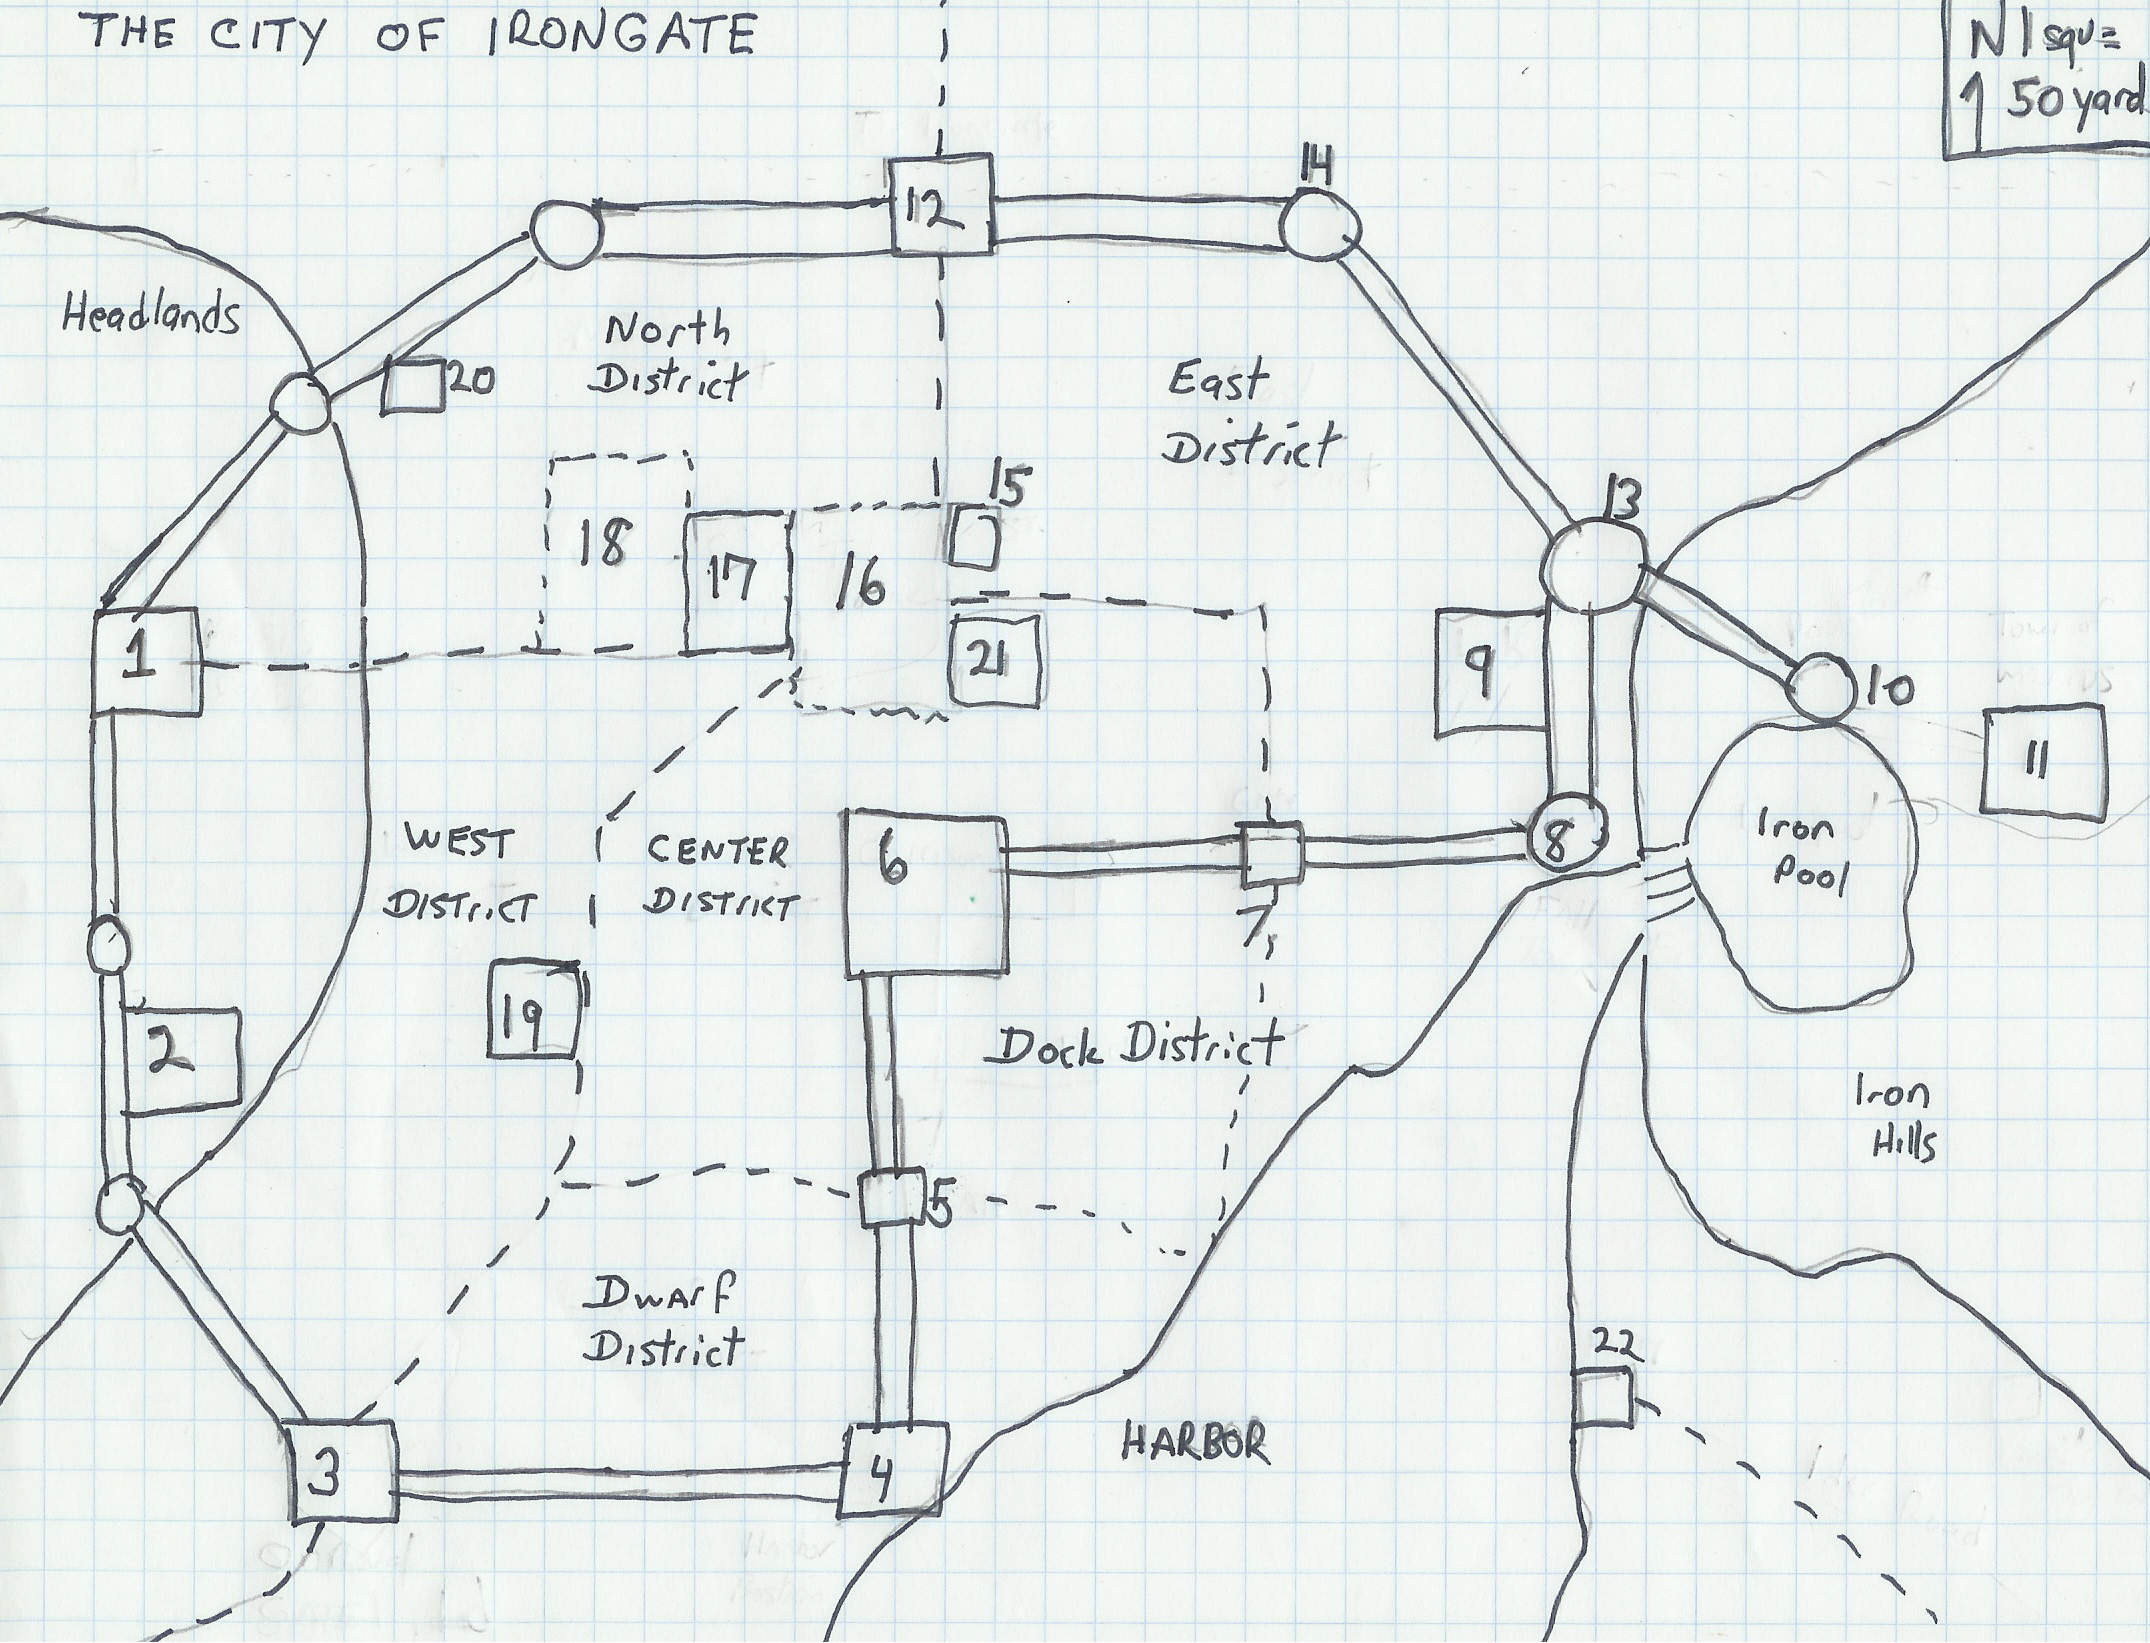 THE CITY OF IRONGATE
N 1 squ =
50 yard
14
12
Headlands
North
District
20
East
District
15
13
18
17
16
1
21
9
10
11
WEST
DISTRICT
CENTER
DISTRICT
6
8
7
Iron
Pool
19
2
Dock District
Iron
Hills
5
Dwarf
District
22
3
4
HARBOR